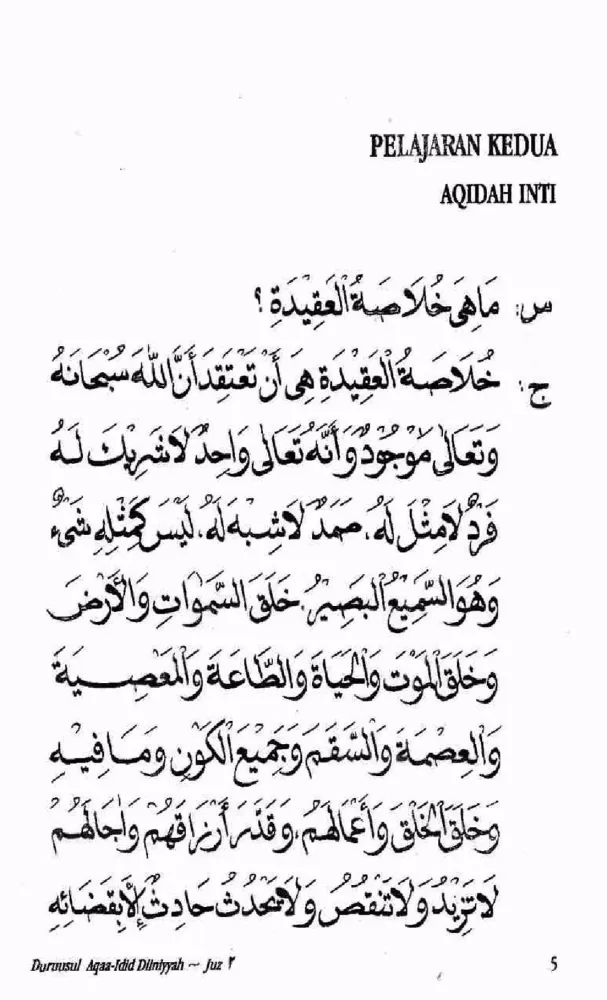 PELAJARAN KEDUA
AQIDAH INTI
س: مَاهِىَ خُلَاصَةُ الْعَقِيْدَةِ ؟
ج: خُلَاصَةُ الْعَقِيْدَةِ هِىَ أَنْ تَعْتَقِدَ أَنَّ اللهَ سُبْحَانَهُ
وَتَعَالَى مَوْجُوْدٌ وَأَنَّهُ تَعَالَى وَاحِدٌ لَاشَرِيْكَ لَهُ
فَرْدٌ لَامِثْلَ لَهُ، صَمَدٌ لَاشِبْهَ لَهُ، لَيْسَ كَمِثْلِهِ شَىْءٌ
وَهُوَ السَّمِيْعُ الْبَصِيْرُ، خَلَقَ السَّمٰوَاتِ وَالْأَرْضَ
وَخَلَقَ الْمَوْتَ وَالْحَيَاةَ وَالطَّاعَةَ وَالْمَعْصِيَةَ
وَالْعِصْمَةَ وَالسَّقَمَ وَجَمِيْعَ الْكَوْنِ وَمَا فِيْهِ
وَخَلَقَ الْخَلْقَ وَأَعْمَالَهُمْ، وَقَدَّرَ أَرْزَاقَهُمْ وَاٰجَالَهُمْ
لَاتَزِيْدُ وَلَاتَنْقُصُ وَلَايَحْدُثُ حَادِثٌ إِلَّا بِقَضَائِهِ
Duruusul Aqaa-Idid Diiniyyah ~ Juz ٢
5